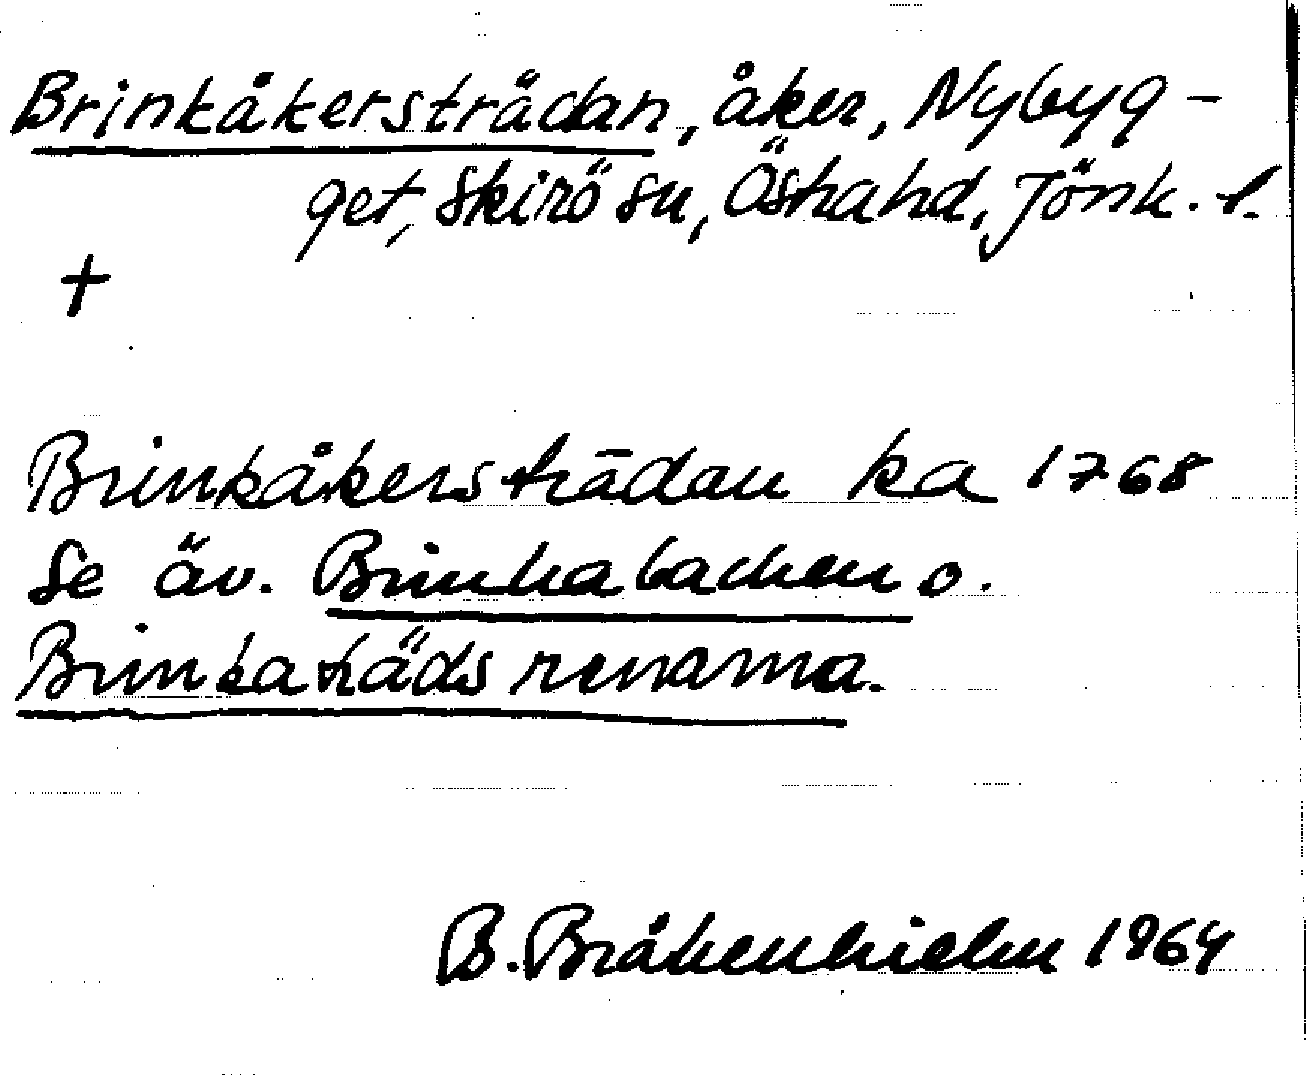 Brinkåkersträdan, åker, Nybyg-
get, Skirö sn, Östra hd, Jönk. l.
+
Brinkåkersträdan ka 1768
Se äv. Brinkabacken o.
Brinkaträds renarna.
B. Bråkenhielm 1964